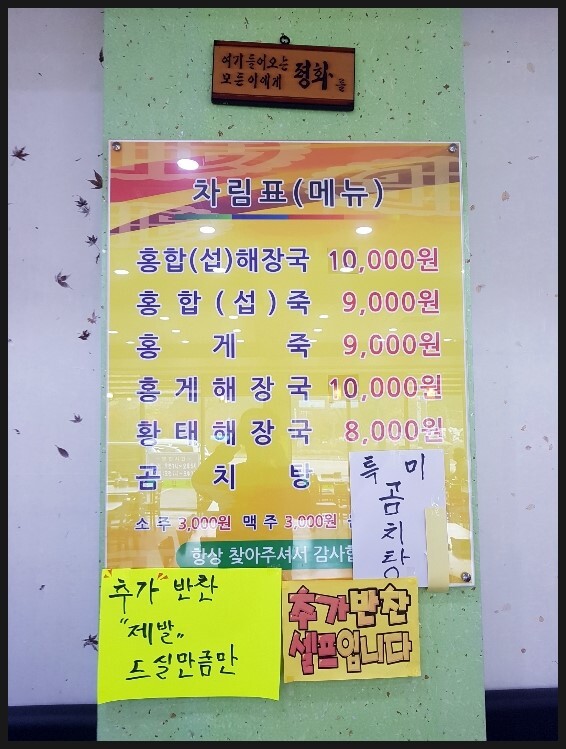 여기 들어오는
모든이에게 평화를
차림표(메뉴)
홍합(섭)해장국 10,000원
홍합(섭)죽 9,000원
홍게죽 9,000원
홍게해장국 10,000원
황태해장국 8,000원
곰치탕
소주 3,000원 맥주 3,000원
항상 찾아주셔서
특미
곰치탕
추가 반찬
"제발"
드실만큼만
추가반찬
셀프입니다